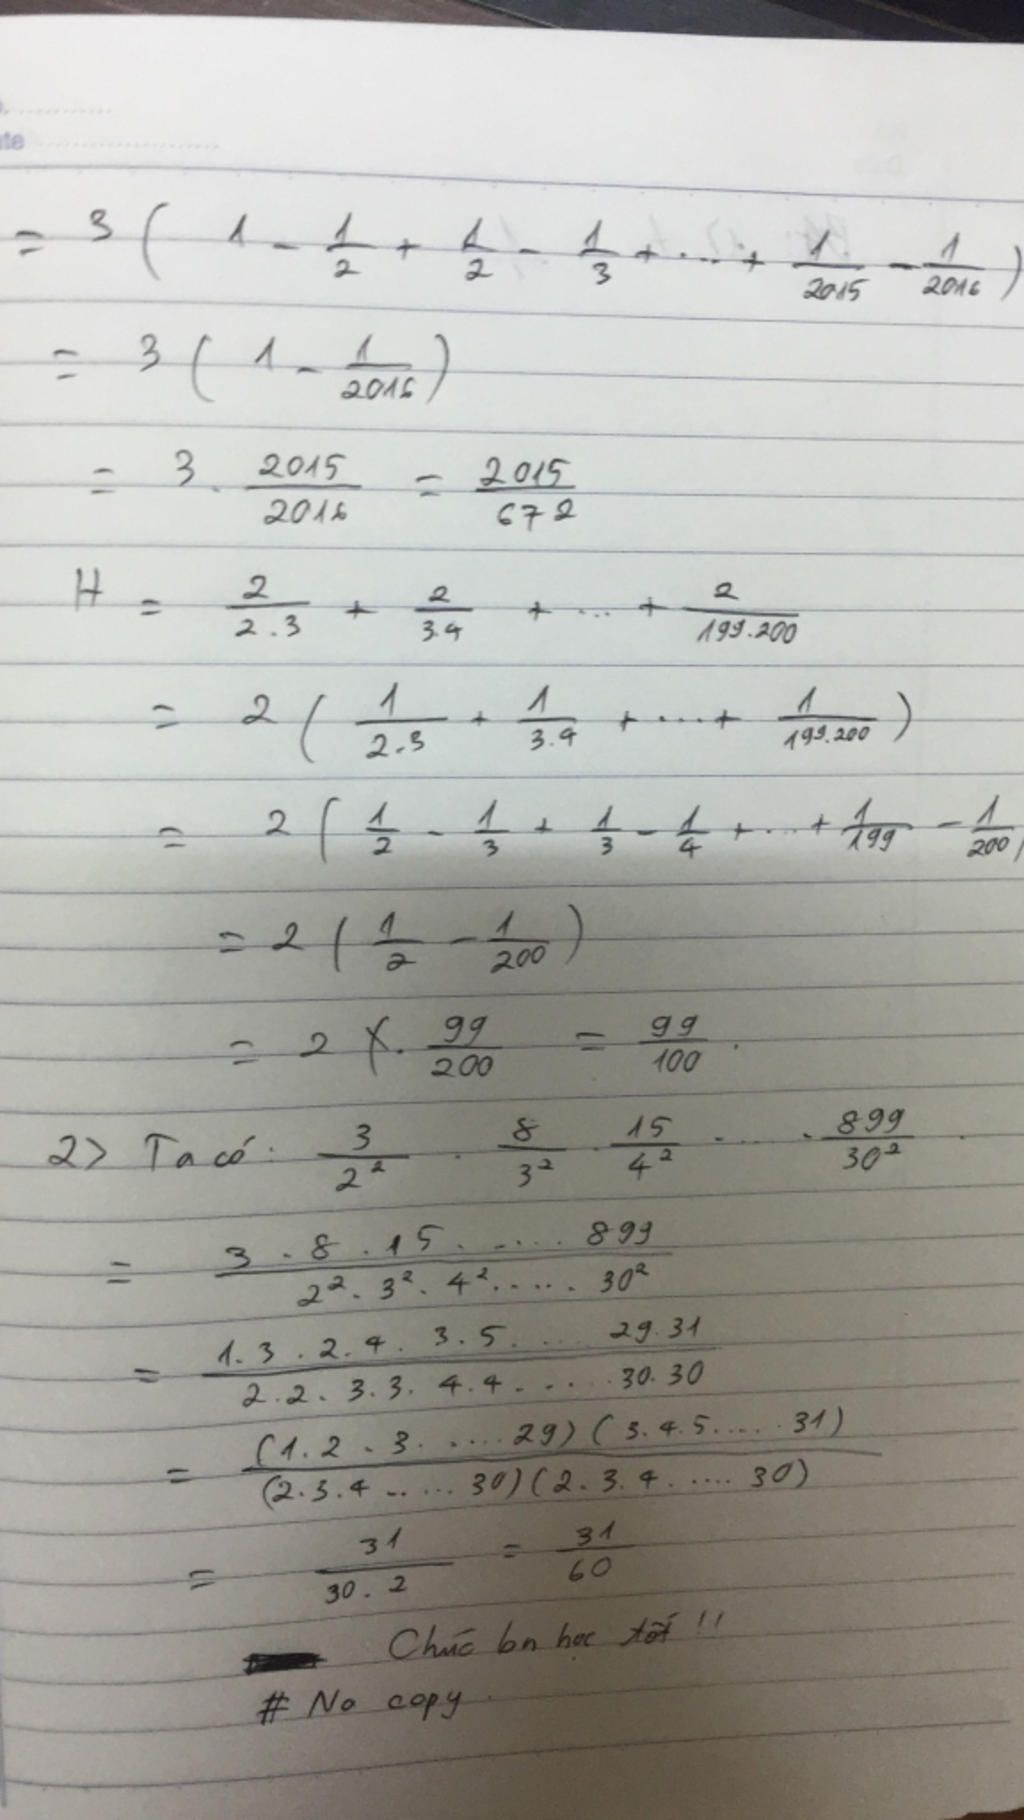 ate
= 3 ( 1 - 1/2 + 1/2 - 1/3 + ... + 1/2015 - 1/2016 )
= 3 ( 1 - 1/2016 )
= 3 . 2015/2016 = 2015/672
H = 2/2.3 + 2/3.4 + ... + 2/199.200
= 2 ( 1/2.3 + 1/3.4 + ... + 1/199.200 )
= 2 ( 1/2 - 1/3 + 1/3 - 1/4 + ... + 1/199 - 1/200 )
= 2 ( 1/2 - 1/200 )
= 2 . 99/200 = 99/100 .
2> Ta có: 3/2² . 8/3² . 15/4² ..... 899/30²
= 3 . 8 . 15 ..... 899 / 2² . 3² . 4² ..... 30²
= 1.3 . 2.4 . 3.5 .... 29.31 / 2.2 . 3.3 . 4.4 ..... 30.30
= (1.2.3. .... 29) (3.4.5 ..... 31) / (2.3.4 ..... 30) (2.3.4 ..... 30)
= 31/30.2 = 31/60
Chúc bn học tốt !!
# No copy.